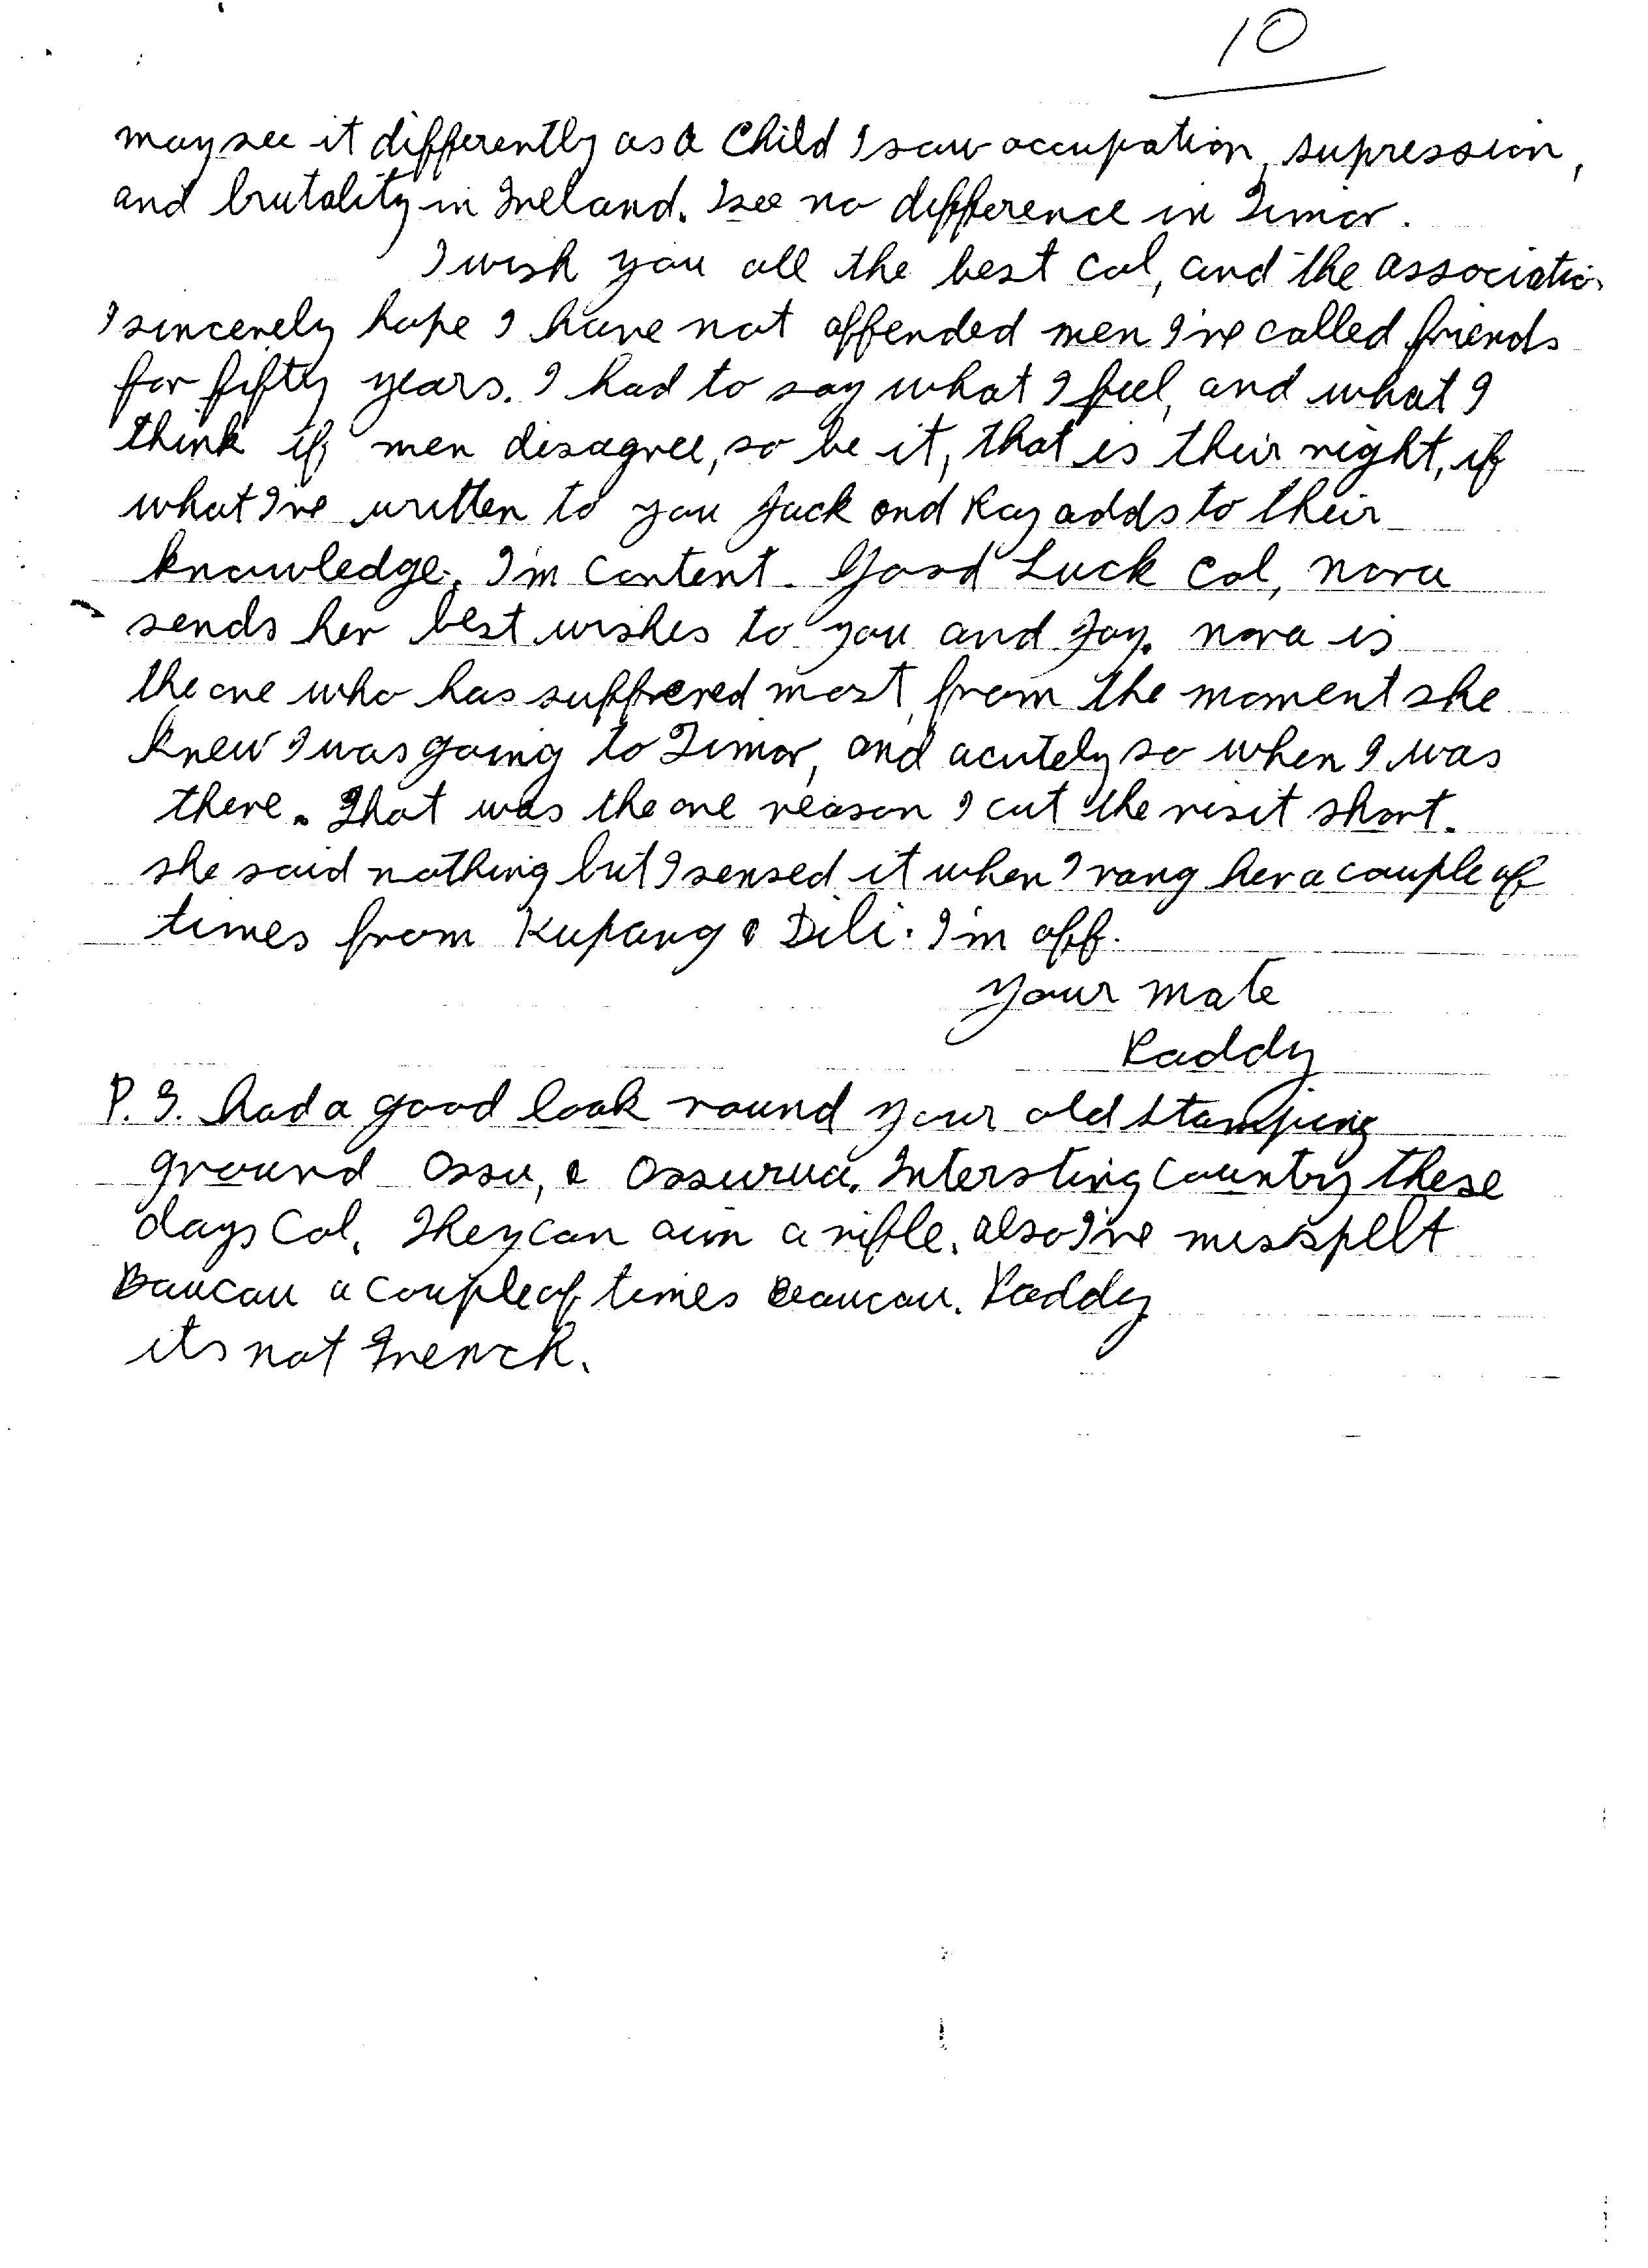 10
may see it differently as a Child I saw occupation, supression,
and brutality in Ireland. I see no difference in Timor.
I wish you all the best Col, and the association
I sincerely hope I have not offended men I've called friends
for fifty years. I had to say what I feel, and what I
think if men disagree, so be it, that is their right, if
what I've written to you Jack and Ray adds to their
knowledge, I'm content. Good Luck Col, Nora
sends her best wishes to you and Joy. Nora is
the one who has suffered most, from the moment she
knew I was going to Timor, and acutely so when I was
there. That was the one reason I cut the visit short.
she said nothing but I sensed it when I rang her a couple of
times from Kupang & Dili. I'm off.
Your mate
Paddy
P.S. had a good look round your old stamping
ground Ossu, & Ossurua. Intersting Country these
days Col. They can aim a rifle. also I've misspelt
Baucau a couple of times Beaucau. Paddy
its not French.